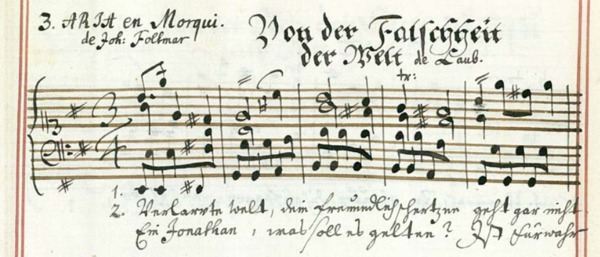 3. ARIA en Morqui.
de Joh: Follmar
Von der Falschheit
der Welt de Laub.
tr:
3
4
1.
2. Verlarvte welt, dein freundlich schertzen geht gar nicht
Ein Jonathan, was soll es gelten? Ist fürwahr